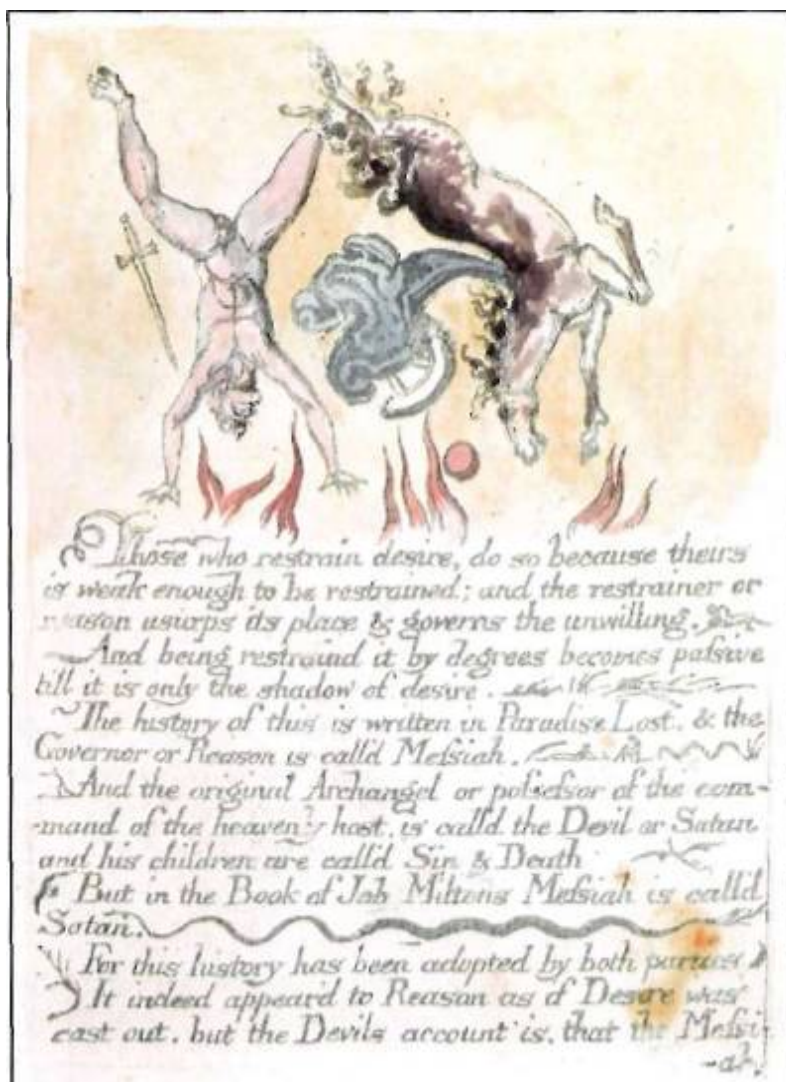 Those who restrain desire, do so because theirs
is weak enough to be restrained; and the restrainer or
reason usurps its place & governs the unwilling.
And being restraind it by degrees becomes paſsive
till it is only the shadow of desire.
The history of this is written in Paradise Lost. & the
Governor or Reason is call'd Meſsiah.
And the original Archangel or poſseſsor of the com-
-mand of the heavenly host, is calld the Devil or Satan
and his children are call'd Sin & Death
But in the Book of Job Miltons Meſsiah is call'd
Satan.
For this history has been adopted by both parties
It indeed appear'd to Reason as if Desire was
cast out. but the Devils account is, that the Meſsi-
-ah.